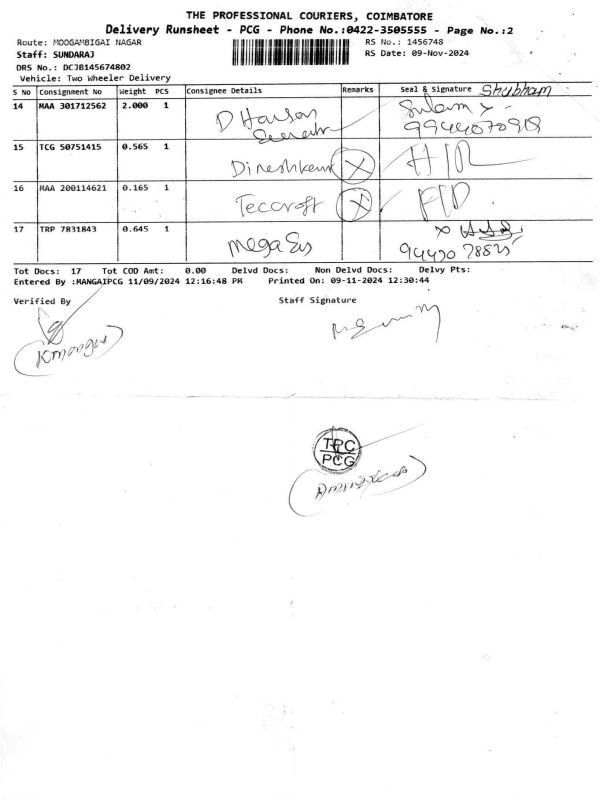 THE PROFESSIONAL COURIERS, COIMBATORE
Delivery Runsheet - PCG - Phone No.:0422-3505555 - Page No.:2
Route: MOOGAMBIGAI NAGAR RS No.: 1456748
Staff: SUNDARAJ RS Date: 09-Nov-2024
DRS No.: DCJB145674802
Vehicle: Two Wheeler Delivery
S No Consignment No Weight PCS Consignee Details Remarks Seal & Signature Shubham
14 MAA 301712562 2.000 1 D
15 TCG 50751415 0.565 1 Dineshkumar X
16 MAA 200114621 0.165 1 Teccroft X
17 TRP 7831843 0.645 1 Mega Sys
Tot Docs: 17 Tot COD Amt: 0.00 Delvd Docs: Non Delvd Docs: Delvy Pts:
Entered By :MANGAIPCG 11/09/2024 12:16:48 PM Printed On: 09-11-2024 12:30:44
Verified By Staff Signature
TPC
PCG